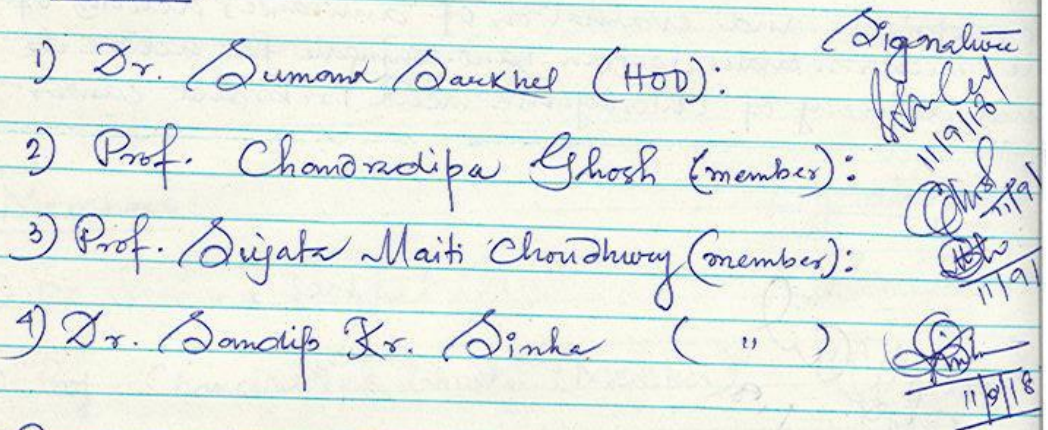 Signature
1) Dr. Sumana Sarkhel (HOD):
11/9/18
2) Prof. Chandradipa Ghosh (member):
11/9/
3) Prof. Sujata Maiti Choudhury (member):
11/9/
4) Dr. Sandip Kr. Sinha ( " )
11/9/18